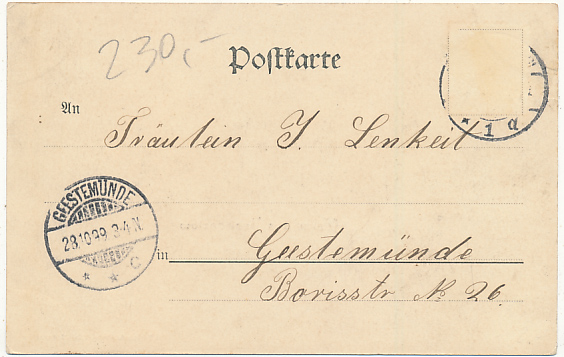 230,-
Postkarte
* 1 a
An
Fräulein J. Lenkeit
GEESTEMÜNDE
28.10.99 3-4 N.
* * C
in Geestemünde
Borisstr № 26.